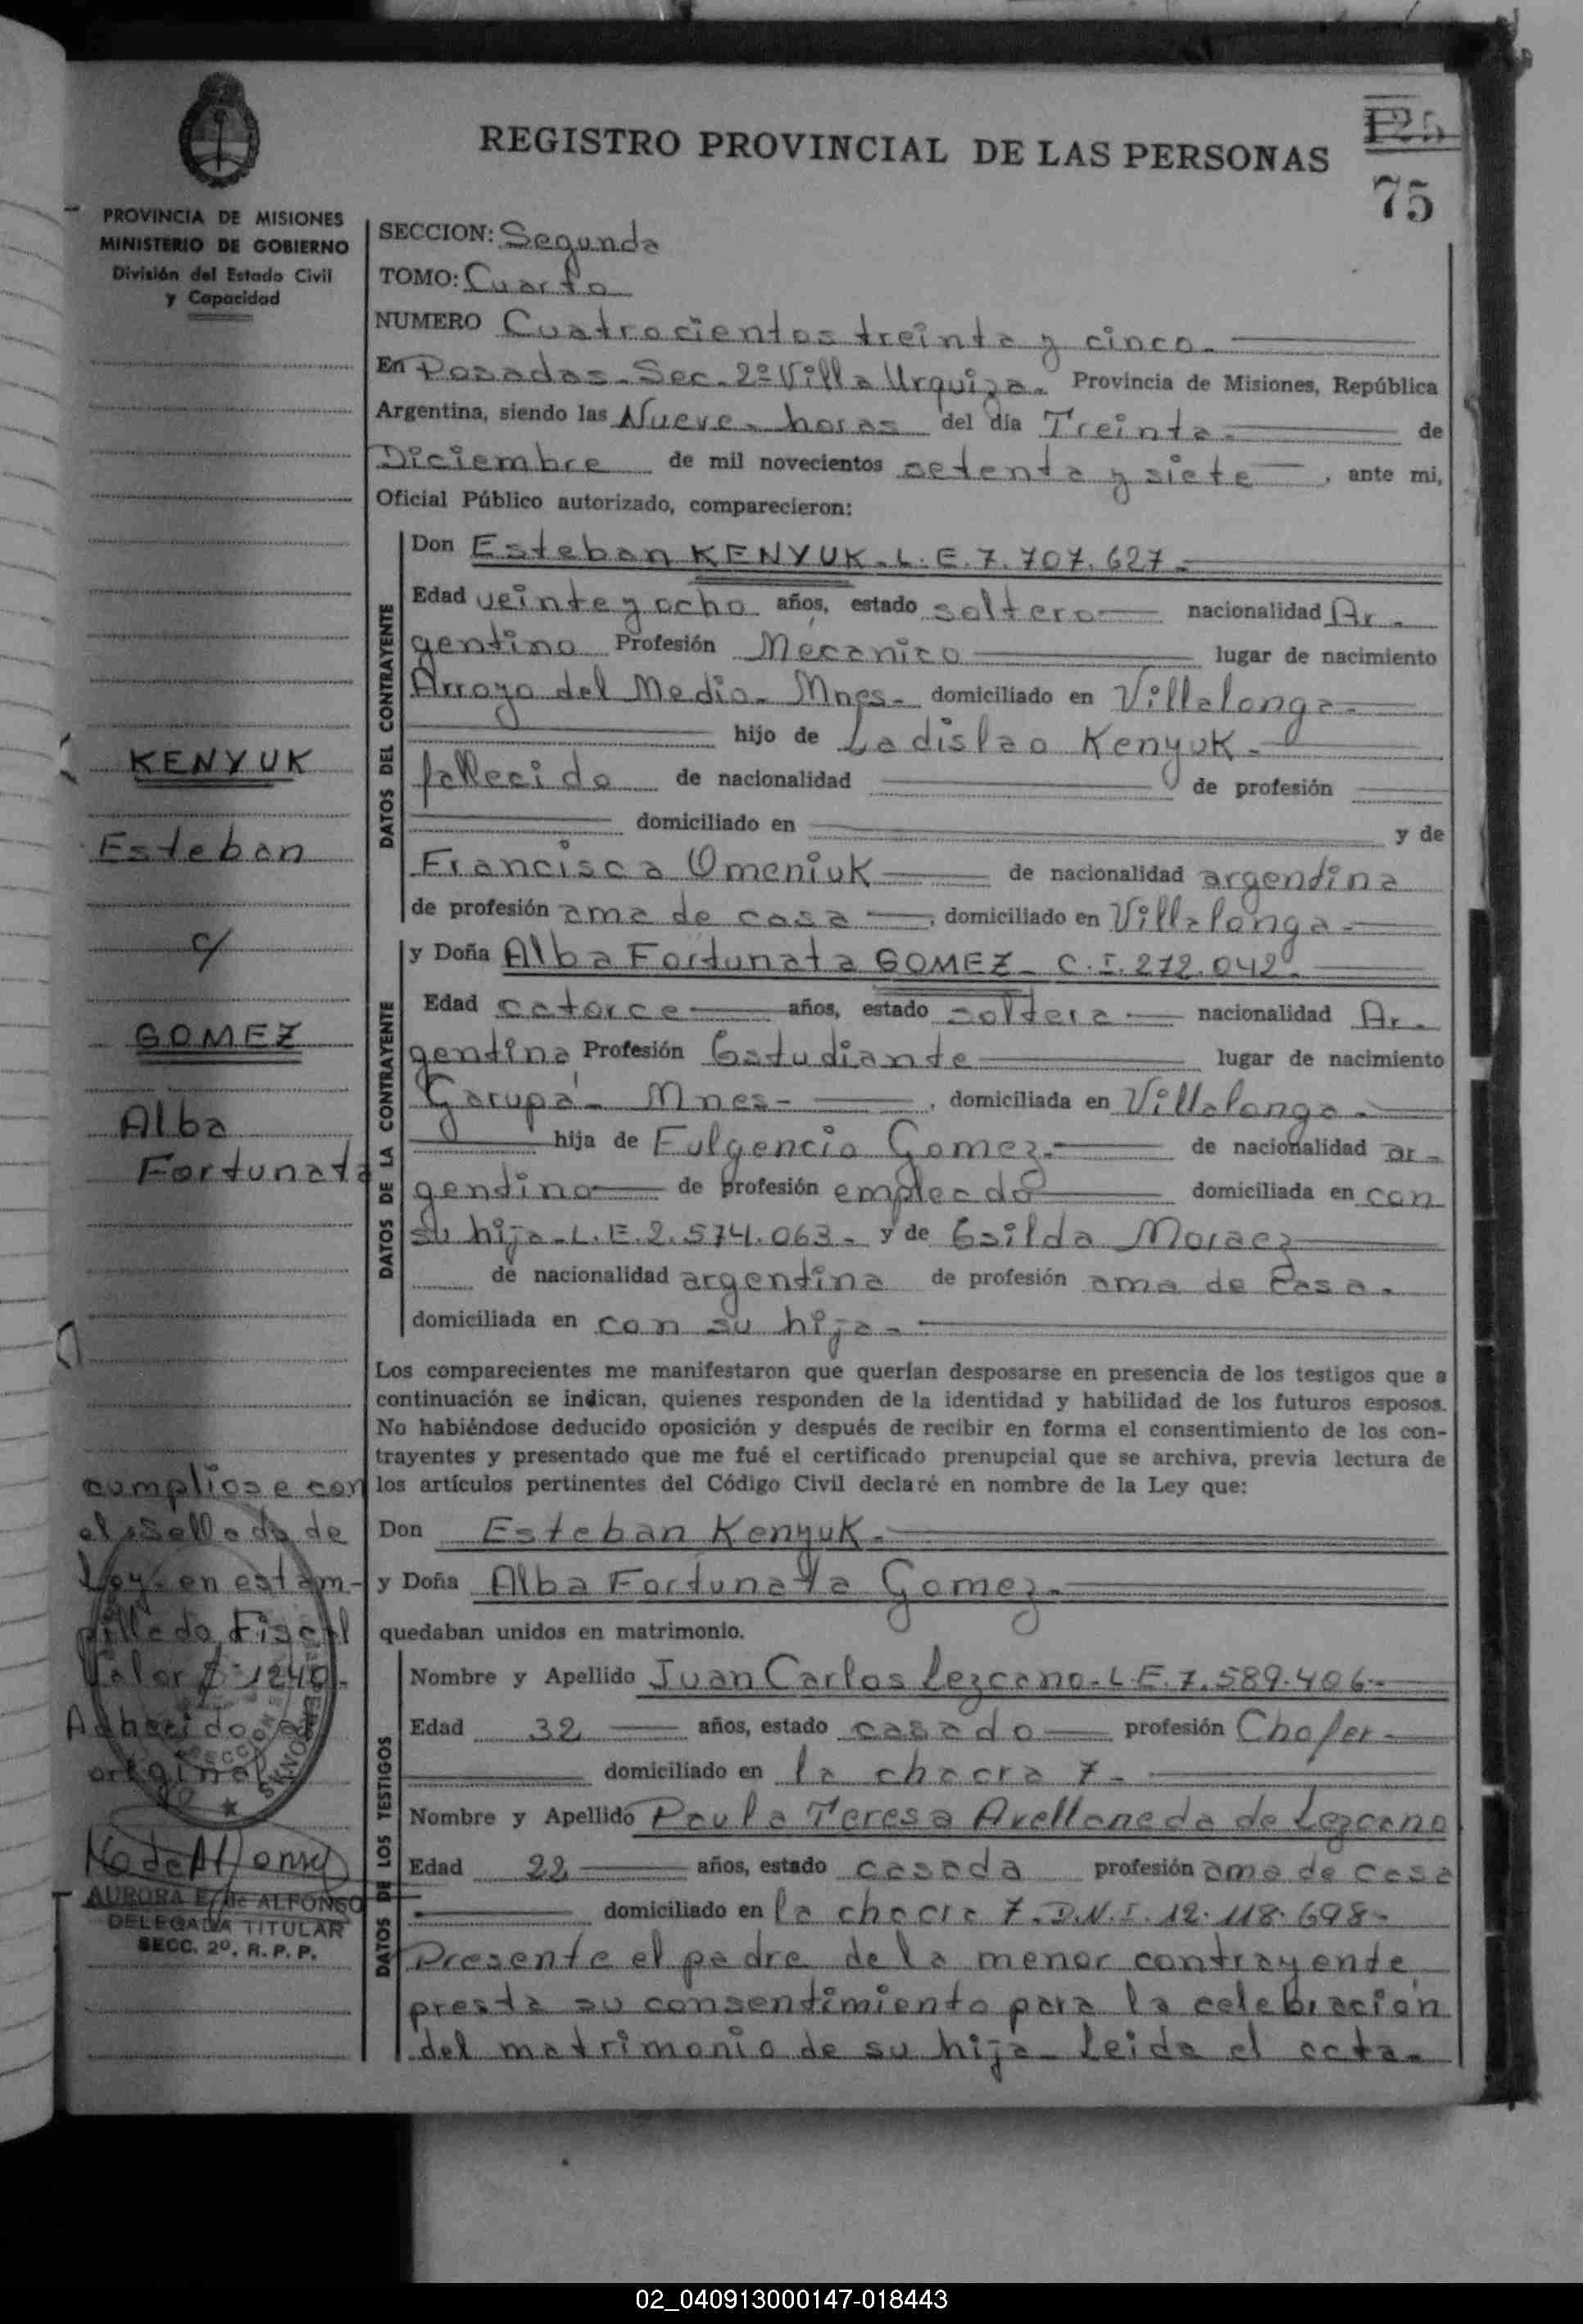 REGISTRO PROVINCIAL DE LAS PERSONAS
125
75
PROVINCIA DE MISIONES
MINISTERIO DE GOBIERNO
División del Estado Civil
y Capacidad
SECCION: Segunda
TOMO: Cuarto
NUMERO Cuatrocientos treinta y cinco.
En Posadas. Sec. 2º Villa Urquiza. Provincia de Misiones, República
Argentina, siendo las Nueve. horas del día Treinta. de
Diciembre de mil novecientos setenta y siete, ante mi,
Oficial Público autorizado, comparecieron:
DATOS DEL CONTRAYENTE
Don Esteban KENYUK. L.E. 7.707.627.
Edad veinte y ocho años, estado soltero nacionalidad Ar-
gentino Profesión Mecanico lugar de nacimiento
Arroyo del Medio. Mnes. domiciliado en Villalonga.
hijo de Ladislao Kenyuk.
fallecido de nacionalidad de profesión
domiciliado en y de
Francisca Omeniuk de nacionalidad argentina
de profesión ama de casa, domiciliado en Villalonga.
DATOS DE LA CONTRAYENTE
y Doña Alba Fortunata GOMEZ. C.I. 272.042.
Edad catorce años, estado soltera nacionalidad Ar-
gentina Profesión Estudiante lugar de nacimiento
Garupá. Mnes-, domiciliada en Villalonga.
hija de Fulgencio Gomez. de nacionalidad ar-
gentino de profesión empleado domiciliada en con
su hija. L.E. 2.574.063. y de Esilda Moraez
de nacionalidad argentina de profesión ama de casa.
domiciliada en con su hija.
Los comparecientes me manifestaron que querían desposarse en presencia de los testigos que a
continuación se indican, quienes responden de la identidad y habilidad de los futuros esposos.
No habiéndose deducido oposición y después de recibir en forma el consentimiento de los con-
trayentes y presentado que me fué el certificado prenupcial que se archiva, previa lectura de
los artículos pertinentes del Código Civil declaré en nombre de la Ley que:
Don Esteban Kenyuk.
y Doña Alba Fortunata Gomez.
quedaban unidos en matrimonio.
DATOS DE LOS TESTIGOS
Nombre y Apellido Juan Carlos Lezcano. L.E. 7.589.406.
Edad 32 años, estado casado profesión Chofer
domiciliado en la chacra 7.
Nombre y Apellido Paula Teresa Avellaneda de Lezcano
Edad 22 años, estado casada profesión ama de casa
domiciliado en la chacra 7. D.N.I. 12.118.698.
Presente el padre de la menor contrayente
presta su consentimiento para la celebración
del matrimonio de su hija. Leida el acta.
KENYUK
Esteban
c/
GOMEZ
Alba
Fortunata
cumpliose con
el sellado de
Ley en estam-
pillado Fiscal
Valor $ 1240.
Adherido al
original
AURORA E. de ALFONSO
DELEGADA TITULAR
SECC. 2º. R. P. P.
02_040913000147-018443